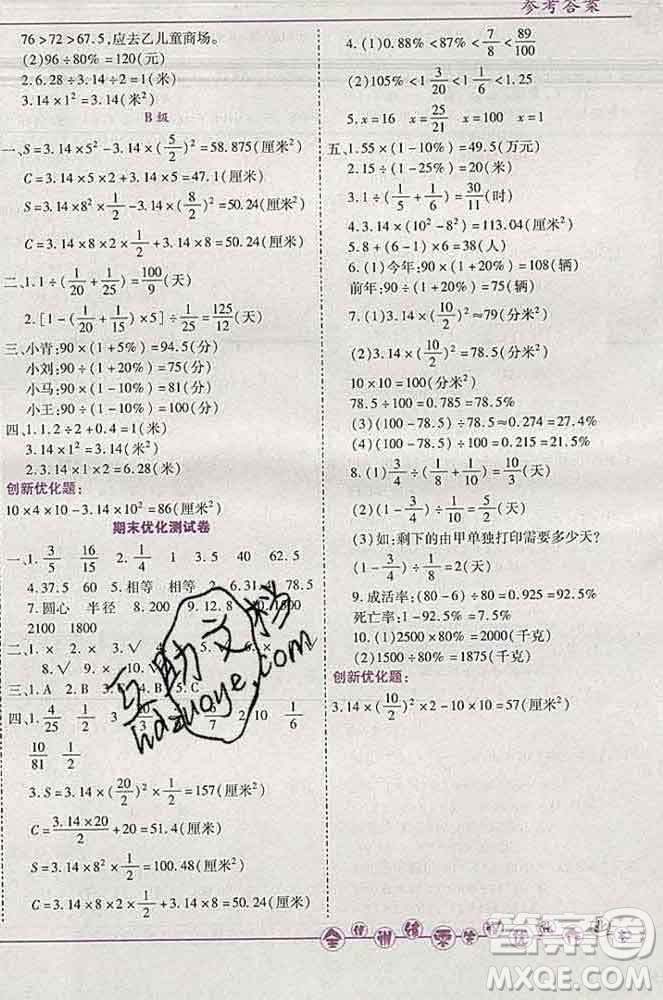 参考答案
76>72>67.5,应去乙儿童商场。
(2)96÷80%=120(元)
2.6.28÷3.14÷2=1(米)
3.14×1²=3.14(米²)
B级
一、S=3.14×5²-3.14×(5/2)²=58.875(厘米²)
C=3.14×5×2+3.14×5=47.1(厘米)
S=3.14×8²×1/2+3.14×(8/2)²=50.24(厘米²)
C=3.14×8×2×1/2+3.14×8=50.24(厘米)
二、1.1÷(1/20+1/25)=100/9(天)
2.[1-(1/20+1/15)×5]÷1/25=125/12(天)
三、小青:90×(1+5%)=94.5(分)
小刘:90×(1-6%)=84.6(分)
小马:90×(1-10%)=81(分)
小王:90×(1-2%)=88.2(分)
四、1.1.2÷2+0.4=1(米)
3.14×1²=3.14(米²)
2.3.14×1×2=6.28(米)
创新优化题:
10×4×10-3.14×10²=86(厘米²)
期末优化测试卷
一、1.3/5 16/15 2.1/4 1 3.5 40 62.5
4.37.5 60 5.相等 相等 2 6.31.4 78.5
7.圆心 半径 8.200 9.12.8 10.1800
2100 1800
1.× 2.× 3.√
8.√ 9.×
三、1.A 2.B 3.B 5.C
四、1.4/25 1/2 3 2 10 1/6
10/81 1/2
3.S=3.14×(20/2)²×1/2=157(厘米²)
C=3.14×20/2+20=51.4(厘米)
S=3.14×8²×1/2=100.48(厘米²)
C=3.14×8×2×1/2+3.14×8=50.24(厘米)
4.(1)0.88%<87%<7/8<89/100
(2)105%<1 3/20<1 1/6<1.25
5.x=16 25/21 x=100 x=8
五、1.55×(1-10%)=49.5(万元)
2.15÷(1-10%)=50/3(天)
3.1÷(1/5+1/6)=30/11(时)
4.3.14×(10²-8²)=113.04(厘米²)
5.8+(6-1)×6=38(人)
6.(1)今年:90×(1+20%)=108(辆)
前年:90÷(1-10%)=100(辆)
7.(1)3.14×(10/2)²≈79(分米²)
(2)3.14×(10/2)²=78.5(分米²)
10×10=100(分米²)
78.5÷100=0.785=78.5%
(3)(100-78.5)÷78.5≈27.4%
(4)(100-78.5)÷100=21.5%
8.(1)3/4÷(1/8+1/10)=10/3(天)
(3)如:剩下的由甲单独打印需要多少天?
(1-3/4)÷1/8=2(天)
9.成活率:(80-6)÷80=0.925=92.5%
死亡率:1-92.5%=7.5%
10.(1)2500×80%=2000(千克)
(2)1500÷80%=1875(千克)
创新优化题:
3.14×(10/2)²×2-10×10=57(厘米²)
互助文档
hdzuoye.com
答案圈
MXQE.COM